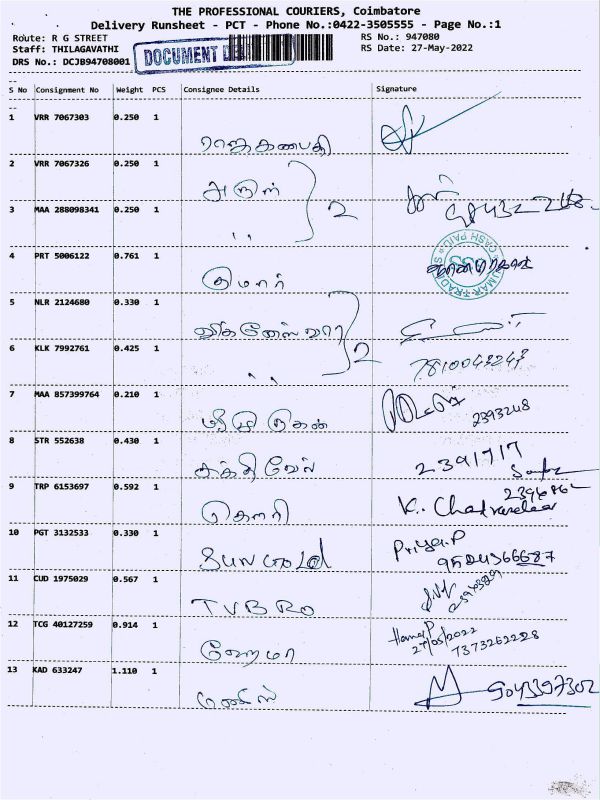 THE PROFESSIONAL COURIERS, Coimbatore
Delivery Runsheet - PCT - Phone No.:0422-3505555 - Page No.:1
Route: R G STREET RS No.: 947080
Staff: THILAGAVATHI RS Date: 27-May-2022
DRS No.: DCJB94708001 DOCUMENT
S No Consignment No Weight PCS Consignee Details Signature
1 VRR 7067303 0.250 1 ராஜகணபதி
2 VRR 7067326 0.250 1 அருள் 2
3 MAA 288098341 0.250 1 ,,
4 PRT 5006122 0.761 1 குமார் CASH PAID
5 NLR 2124680 0.330 1 விக்னேஸ்வரா 2
6 KLK 7992761 0.425 1 ,, 7810043243
7 MAA 857399764 0.210 1 2393248
8 STR 552638 0.430 1 சக்திவேல் 2391717
9 TRP 6153697 0.592 1 கௌரி K. Chadraseker
10 PGT 3132533 0.330 1 Sun Gold Priya.P
9524366687
11 CUD 1975029 0.567 1 TVB RO
12 TCG 40127259 0.914 1 ஹேமா Hema P
27/05/2022
7373262228
13 KAD 633247 1.110 1 மணிஸ் 9043397302